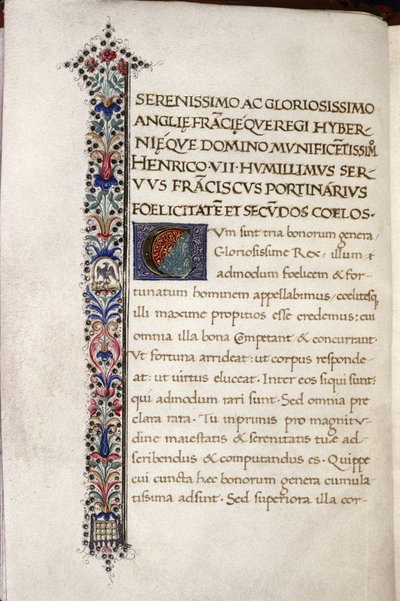 SERENISSIMO AC GLORIOSISSIMO
ANGLIĘ FRÃCIĘQVE REGI HYBER-
NIĘQVE DOMINO MVNIFICẼTISSIM̃
HENRICO·VII·HVMILLIMVS SER
VVS FRÃCISCVS PORTINÁRIVS
FOELICITATẼ ET SECṼDOS COELOS·
CVm sunt tria bonorum genera/
Gloriosissime Rex/ illum &
admodum foelicem & for-
tunatum hominem appellabimus/ coelitesq;
illi maxime propitios esse credemus: cui
omnia illa bona Competant & concurrant.
Vt fortuna arrideat: ut corpus responde-
at: ut uirtus eluceat. Inter eos siqui sunt:
qui admodum rari sunt. Sed omnia pre
clara rara. Tu inprimis pro magnitu-
dine maiestatis & serenitatis tuę ad-
scribendus & computandus es. Quippe
cui cuncta hęc bonorum genera cumula
tissima adsint. Sed superiora illa cor-